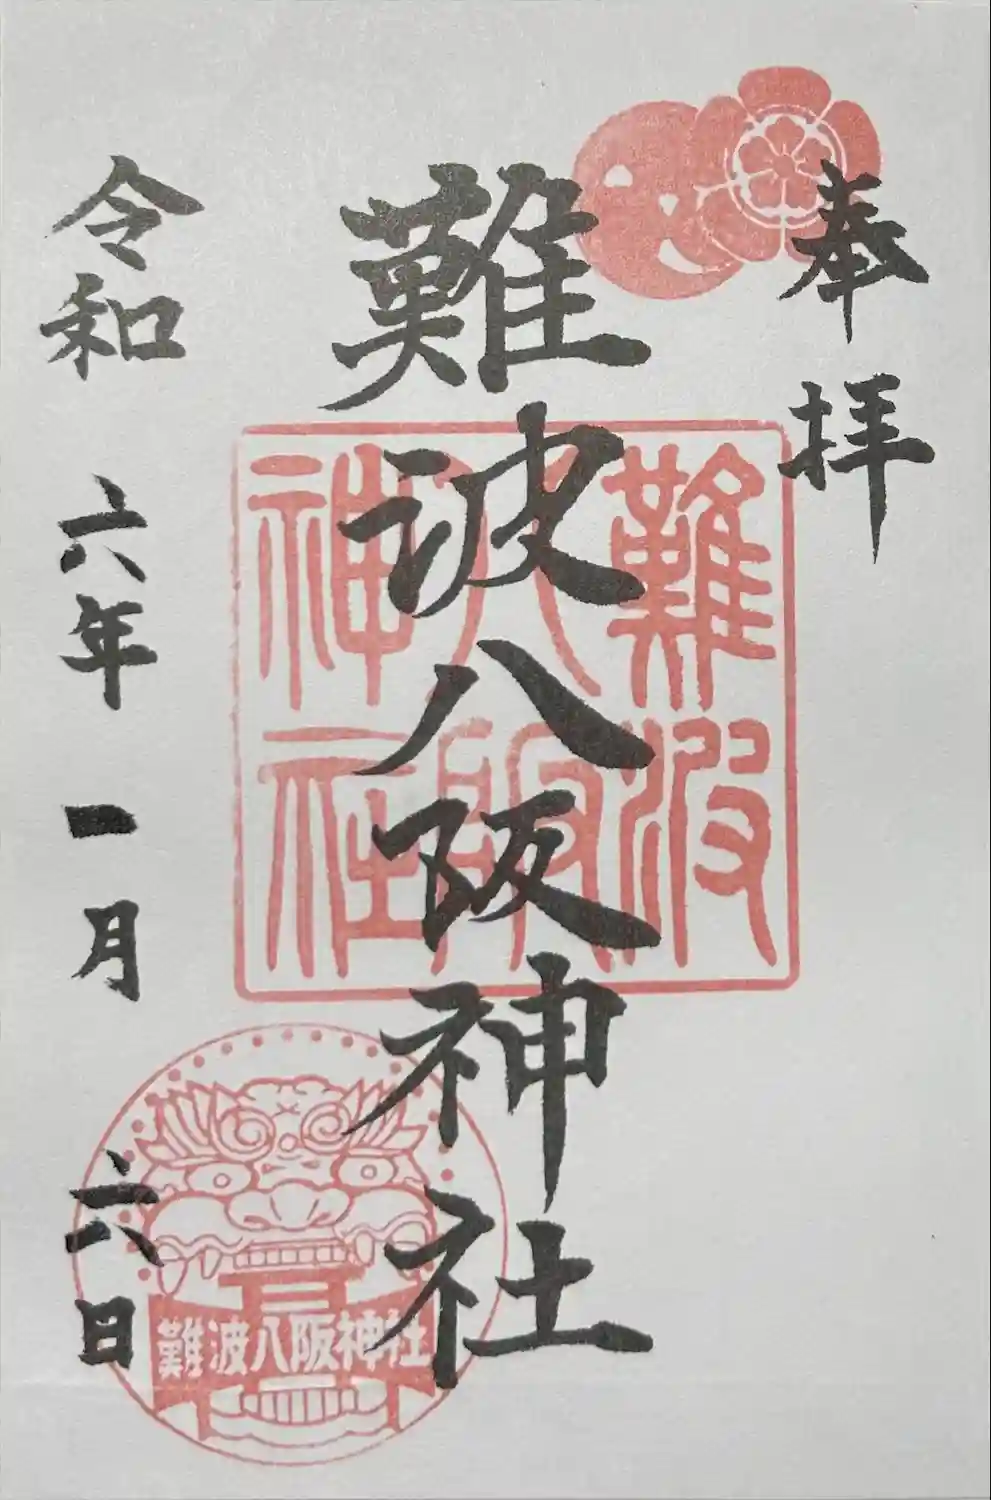 奉拝
難波八阪神社
難波
八阪
神社
令和六年一月六日
難波八阪神社